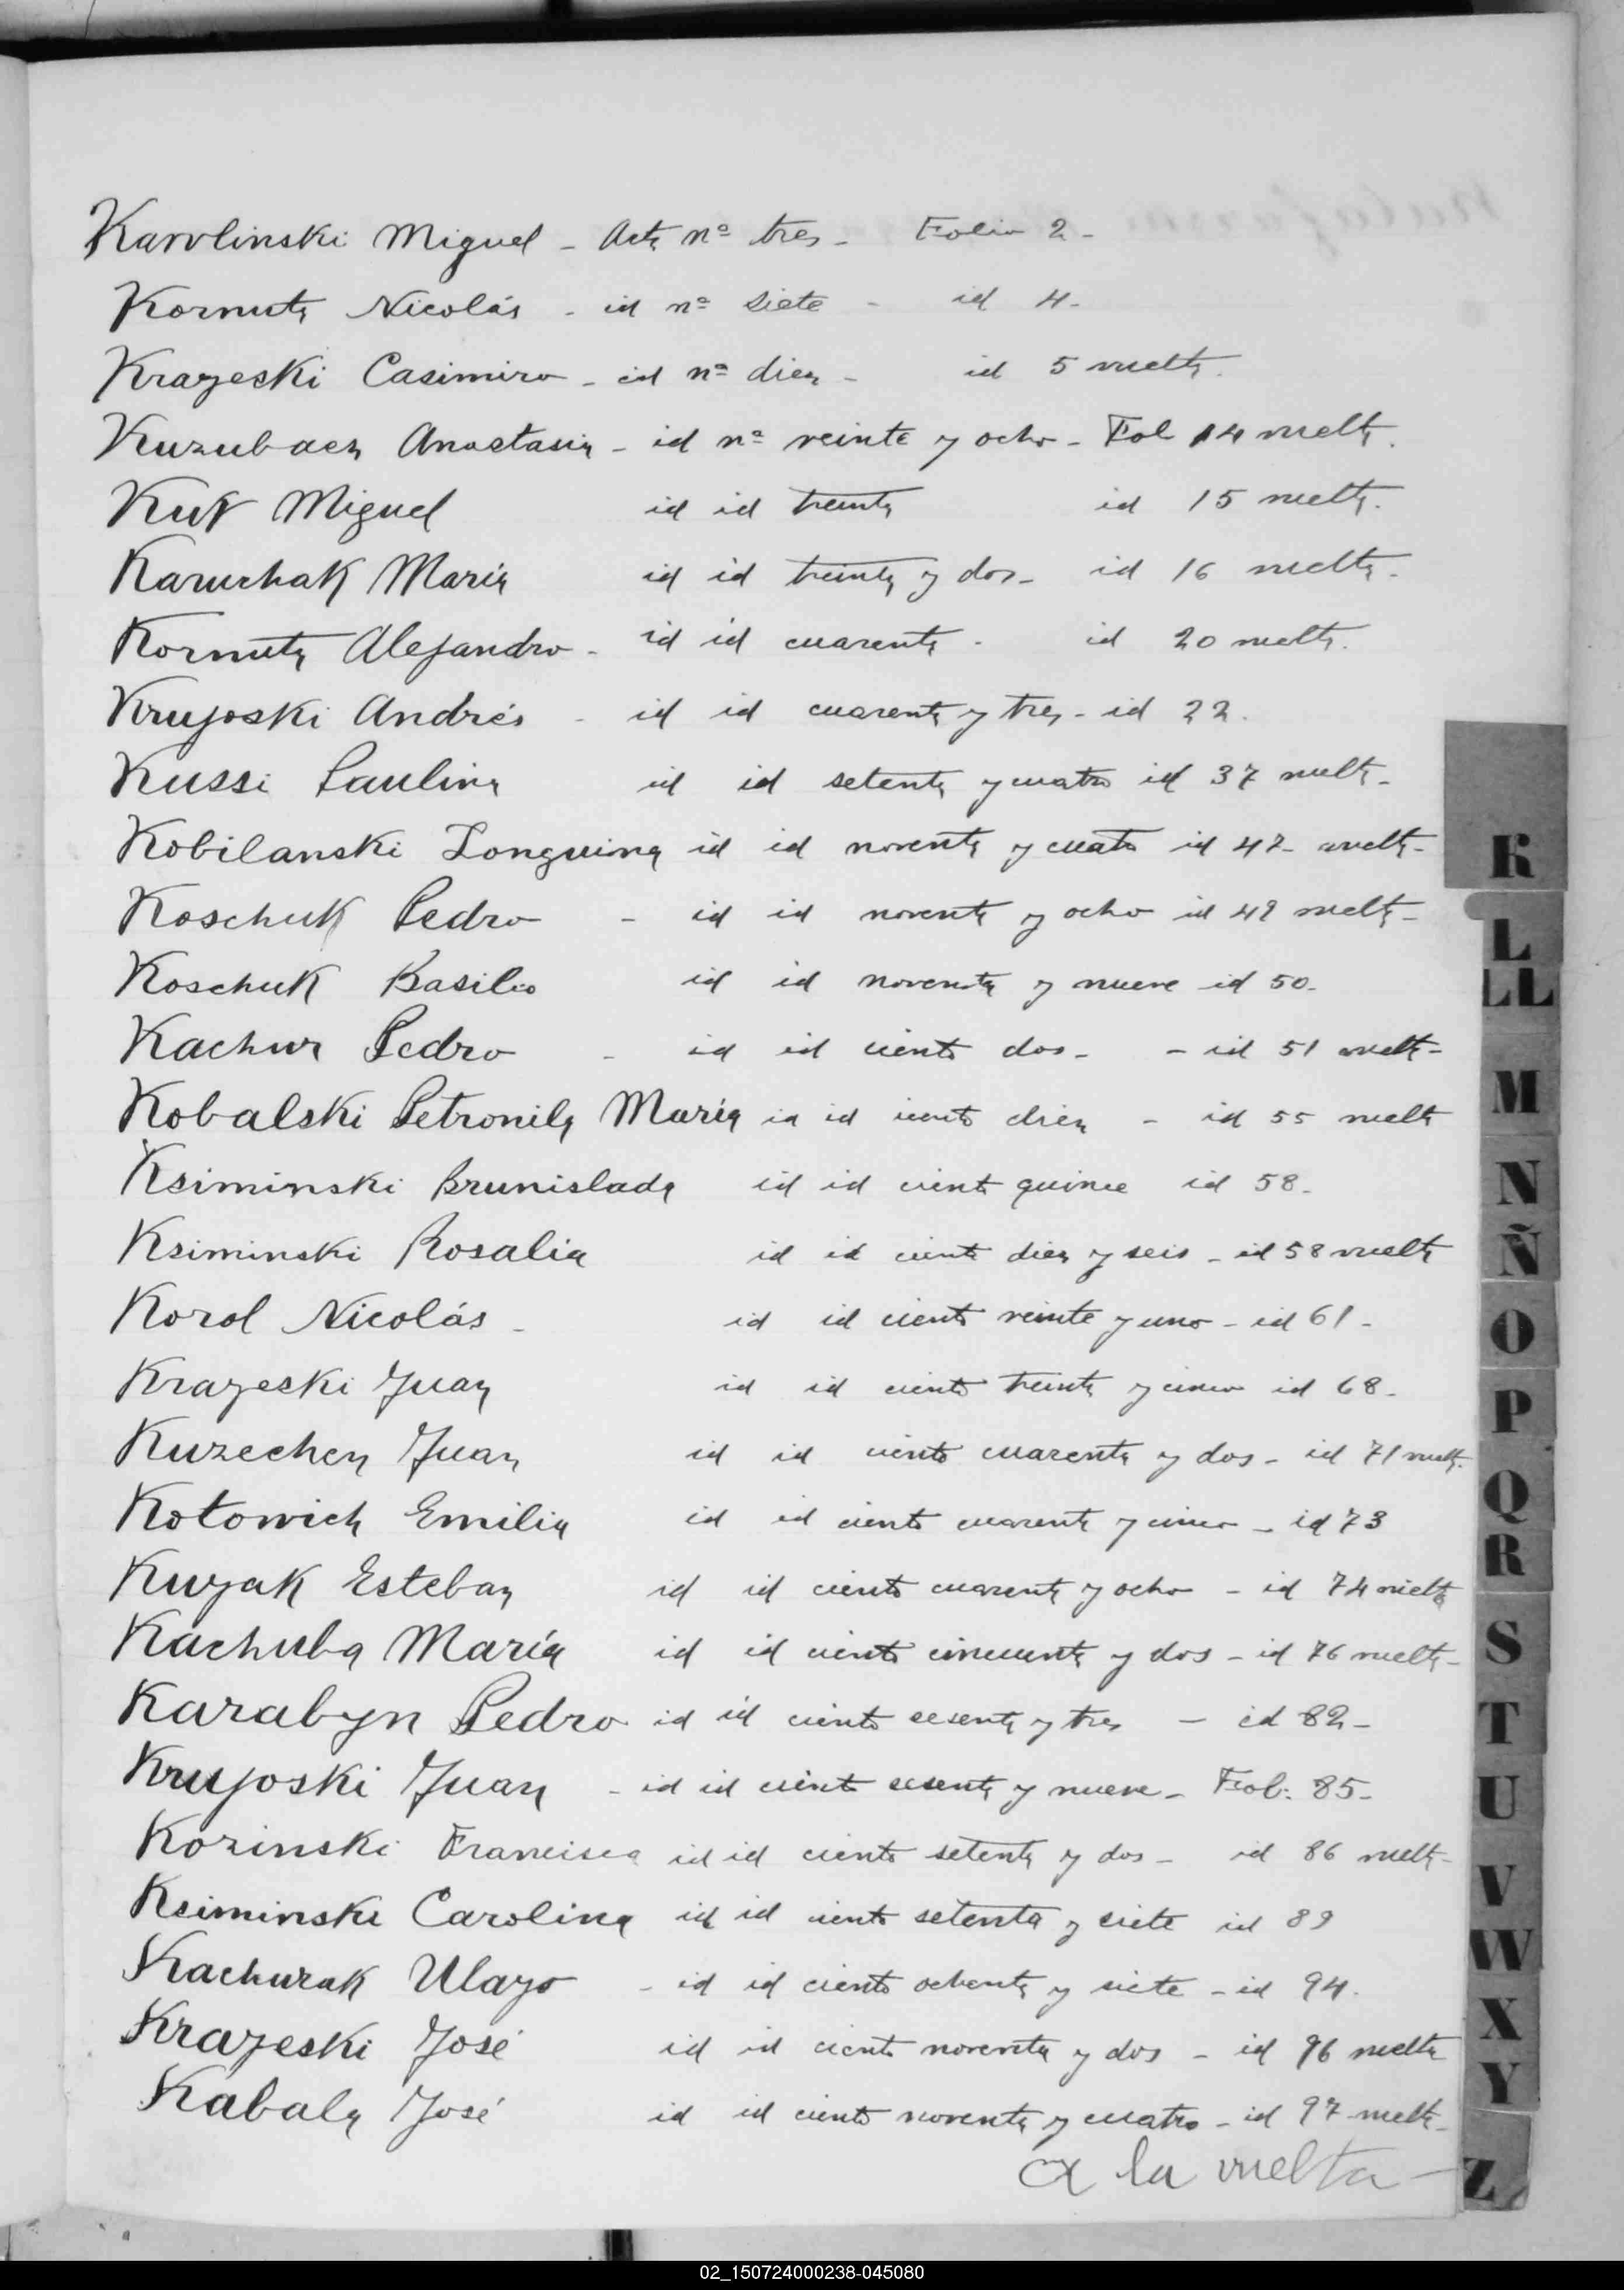 Karolinski Miguel - Acta nº tres - Folio 2 -
Kornuta Nicolás - id nº siete - id 4 -
Krayeski Casimiro - id nº diez - id 5 vuelta.
Kuzubaez Anastasia - id nº veinte y ocho - Fol 14 vuelta.
Kuk Miguel id id treinta id 15 vuelta.
Karuchak María id id treinta y dos - id 16 vuelta -
Kornuta Alejandro - id id cuarenta - id 20 vuelta.
Krujoski Andrés - id id cuarenta y tres - id 22.
Kussi Paulina id id setenta y cuatro id 37 vuelta -
Kobilanski Longuina id id noventa y cuatro id 47 - vuelta -
Koschuk Pedro - id id noventa y ocho id 49 vuelta -
Koschuk Basilio id id noventa y nueve id 50 -
Kachur Pedro - id id ciento dos - - id 51 vuelta -
Kobalski Petronila María id id ciento diez - id 55 vuelta
Ksiminski Brunislada id id ciento quince id 58 -
Ksiminski Rosalia id id ciento diez y seis - id 58 vuelta
Korol Nicolás - id id ciento veinte y uno - id 61 -
Krayeski Juan id id ciento treinta y cinco id 68 -
Kuzechen Juan id id ciento cuarenta y dos - id 71 vuelta.
Kotowich Emilia id id ciento cuarenta y cinco - id 73
Kuyak Esteban id id ciento cuarenta y ocho - id 74 vuelta
Kachuba María id id ciento cincuenta y dos - id 76 vuelta -
Karabyn Pedro id id ciento sesenta y tres - id 82 -
Krujoski Juan - id id ciento sesenta y nueve - Fol. 85 -
Kozinski Francisca id id ciento setenta y dos - id 86 vuelta -
Ksiminski Carolina id id ciento setenta y siete id 89
Kachurak Ulayo - id id ciento ochenta y siete - id 94.
Krayeski José id id ciento noventa y dos - id 96 vuelta
Kabala José id id ciento noventa y cuatro - id 97 vuelta -
a la vuelta -
K
L
LL
M
N
Ñ
O
P
Q
R
S
T
U
V
W
X
Y
Z
02_150724000238-045080